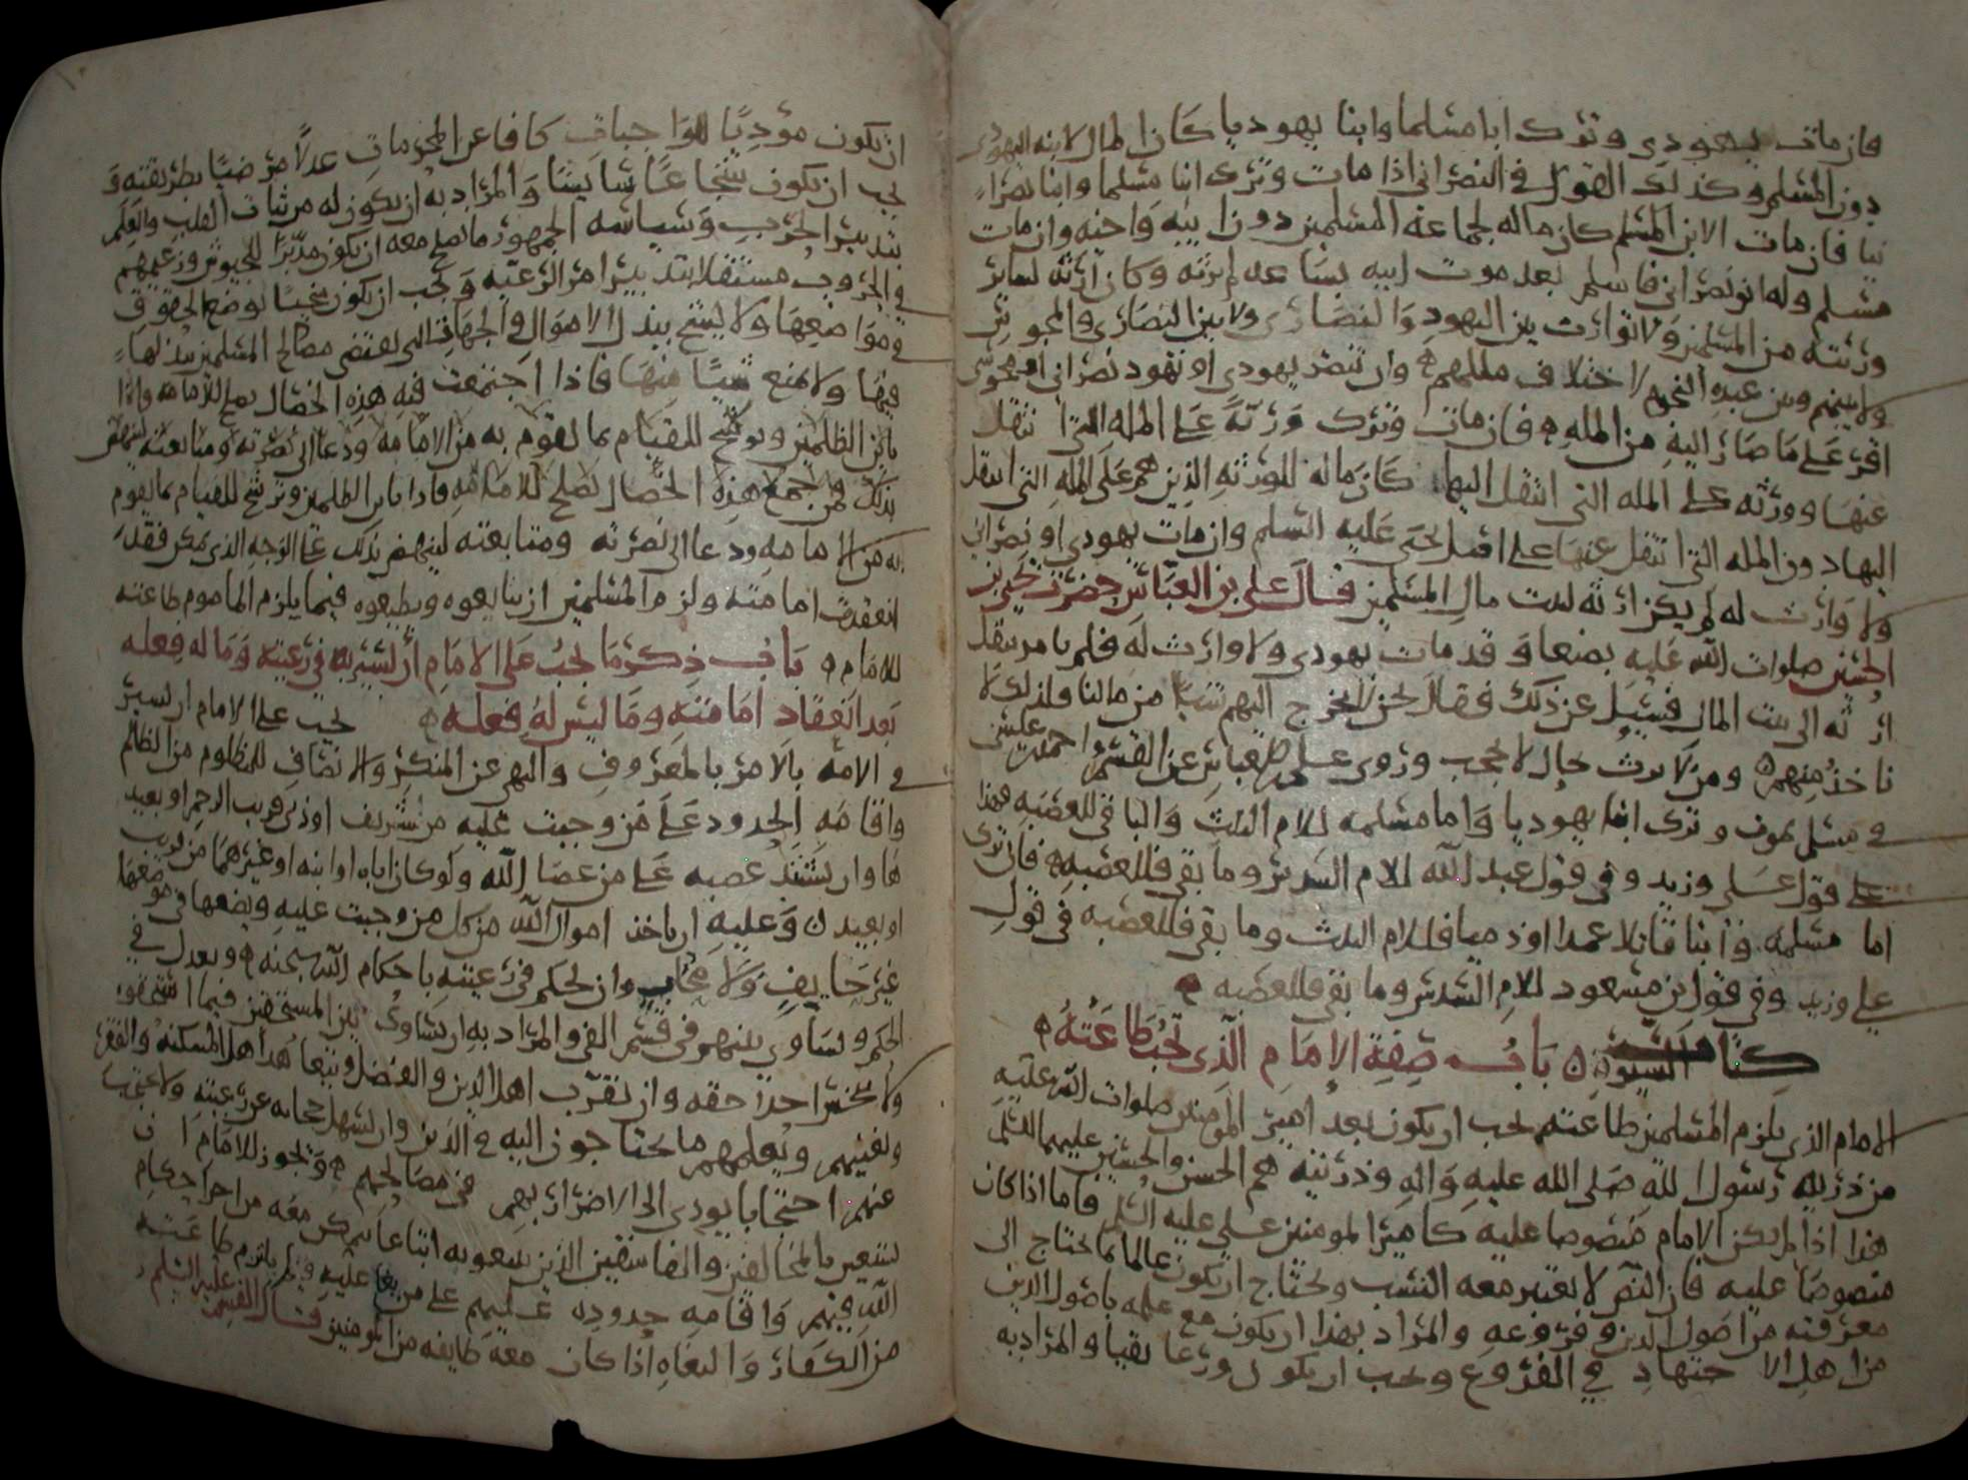 فان مات يهودي وترك ابا مسلما وابنا يهوديا كان المال لابنه اليهودي
دون المسلم وكذلك القول في النصراني اذا مات وترك ابنا مسلما وابنا نصرا
نيا فان مات الابن المسلم كان ماله لجماعة المسلمين دون ابيه واخيه وان مات
مسلم وله ابن نصراني فاسلم بعد موت ابيه بساعة لم يرثه وكان ارثه لسائر
ورثته من المسلمين ولا توارث بين اليهود والنصارى ولا بين النصارى والمجوس
ولا بينهم وبين عبدة النجوم لاختلاف مللهم وان تنصر يهودي او تهود نصراني او مجوسي
اقر على ما صار اليه من الملة فان مات وترك ورثة على الملة التي انتقل
عنها وورثة على الملة التي انتقل اليها كان ماله للورثة الذين هم على الملة التي انتقل
اليها دون الملة التي انتقل عنها على اصل يحيى عليه السلم وان مات يهودي او نصراني
ولا وارث له لم يكن ارثه لبيت مال المسلمين قال علي بن العباس حضرت يحيى بن
الحسين صلوات الله عليه بصنعا وقد مات يهودي ولا وارث له فلم يامر بنقل
ارثه الى بيت المال فسيل عن ذلك فقال نحن لا نخرج اليهم شيا من مالنا ولذلك لا
ناخذ منهم ومن لا يرث بحال لا يحجب وروى علي بن العباس عن القسم واحمد بن عيسى
في مسلم يموت وترك ابنا يهوديا واما مسلمة للام الثلث والباقي للعصبة فهذا
على قول علي وزيد وفي قول عبد الله للام السدس وما بقي فللعصبة فان ترك
اما مسلمة وابنا قاتلا عمدا او ذميا فللام الثلث وما بقي فللعصبة في قول
علي وزيد وفي قول بن مسعود للام السدس وما بقي فللعصبة
كتاب السير باب صفة الامام الذي تجب طاعته
الامام الذي يلزم المسلمين طاعته يجب ان يكون بعد امير المومنين صلوات الله عليه
من ذرية رسول الله صلى الله عليه واله وذريته هم الحسن والحسين عليهما السلم
هذا اذا لم يكن الامام منصوصا عليه كامير المومنين علي عليه السلم فاما اذا كان
منصوصا عليه فان النص لا يعتبر معه النسب ويحتاج ان يكون عالما بما يحتاج الى
معرفته من اصول الدين وفروعه والمراد بهذا ان يكون مع علمه باصول الدين
من اهل الاجتهاد في الفروع ويجب ان يكون ورعا تقيا والمراد به
ان يكون مؤديا للواجبات كافا عن المحرمات عدلا مرضيا بطريقته و
يجب ان يكون شجاعا سايسا والمراد به ان يكون له من ثبات القلب والعلم
بتدبير الحرب وسياسة الجمهور ما يصلح معه ان يكون مدبرا للجيوش وزعيمهم
في الحروب مستقلا بتدبير امر الرعية ويجب ان يكون سخيا بوضع الحقوق
في مواضعها ولا يشح ببذل الاموال في الجهات التي تقتضي مصالح المسلمين بذلها
فيها ولا يمنع شيا منها فاذا اجتمعت فيه هذه الخصال يصلح للامامة واذا
باين الظلمين وترشح للقيام بما يقوم به من الامامة ودعا الى نصرته ومتابعته لينهض
بذلك فمن جمع هذه الخصال يصلح للامامة فاذا باين الظلمين وترشح للقيام بما يقوم
به من الامامة ودعا الى نصرته ومتابعته لينهض بذلك على الوجه الذي يمكن فقد
انعقدت امامته ولزم المسلمين ان يبايعوه ويطيعوه فيما يلزم الماموم طاعته
للامام باب ذكر ما يجب على الامام ان يسير به في رعيته وما له فعله
بعد انعقاد امامته وما ليس له فعله يجب على الامام ان يسير
في الامة بالامر بالمعروف والنهي عن المنكر والانصاف للمظلوم من الظالم
واقامة الحدود على من وجبت عليه من شريف او دني قريب الرحم او بعيد
ها وان يشتد غضبه على من عصا الله ولو كان اباه او ابنه او غيرهما من قريب
او بعيد وعليه ان ياخذ اموال الله من كل من وجبت عليه ويضعها في موضعها
غير حايف ولا محاب وان يحكم في رعيته باحكام الله سبحنه ويعدل في
الحكم ويساوي بينهم في قسم الفي والمراد به ان يساوى بين المستحقين فيما استحقوه
ولا يخس احدا حقه وان يقرب اهل الدين والفضل ويتعاهد اهل المسكنة والفقر
ويغنيهم ويعلمهم ما يحتاجون اليه في الدين وان يسهل حجابه عن رعيته ولا يحتجب
عنهم احتجابا يودي الى الاضرار بهم في مصالحهم ويجوز للامام ان
يستعين بالمخالفين والفاسقين الذين يتبعونه اتباعا يمكن معه من اجرا احكام
الله فيهم واقامة حدوده عليهم على من بغا عليه ولم يلتزم طاعته
من الكفار والبغاة اذا كان معه طايفة من المومنين قال القسم عليه السلم